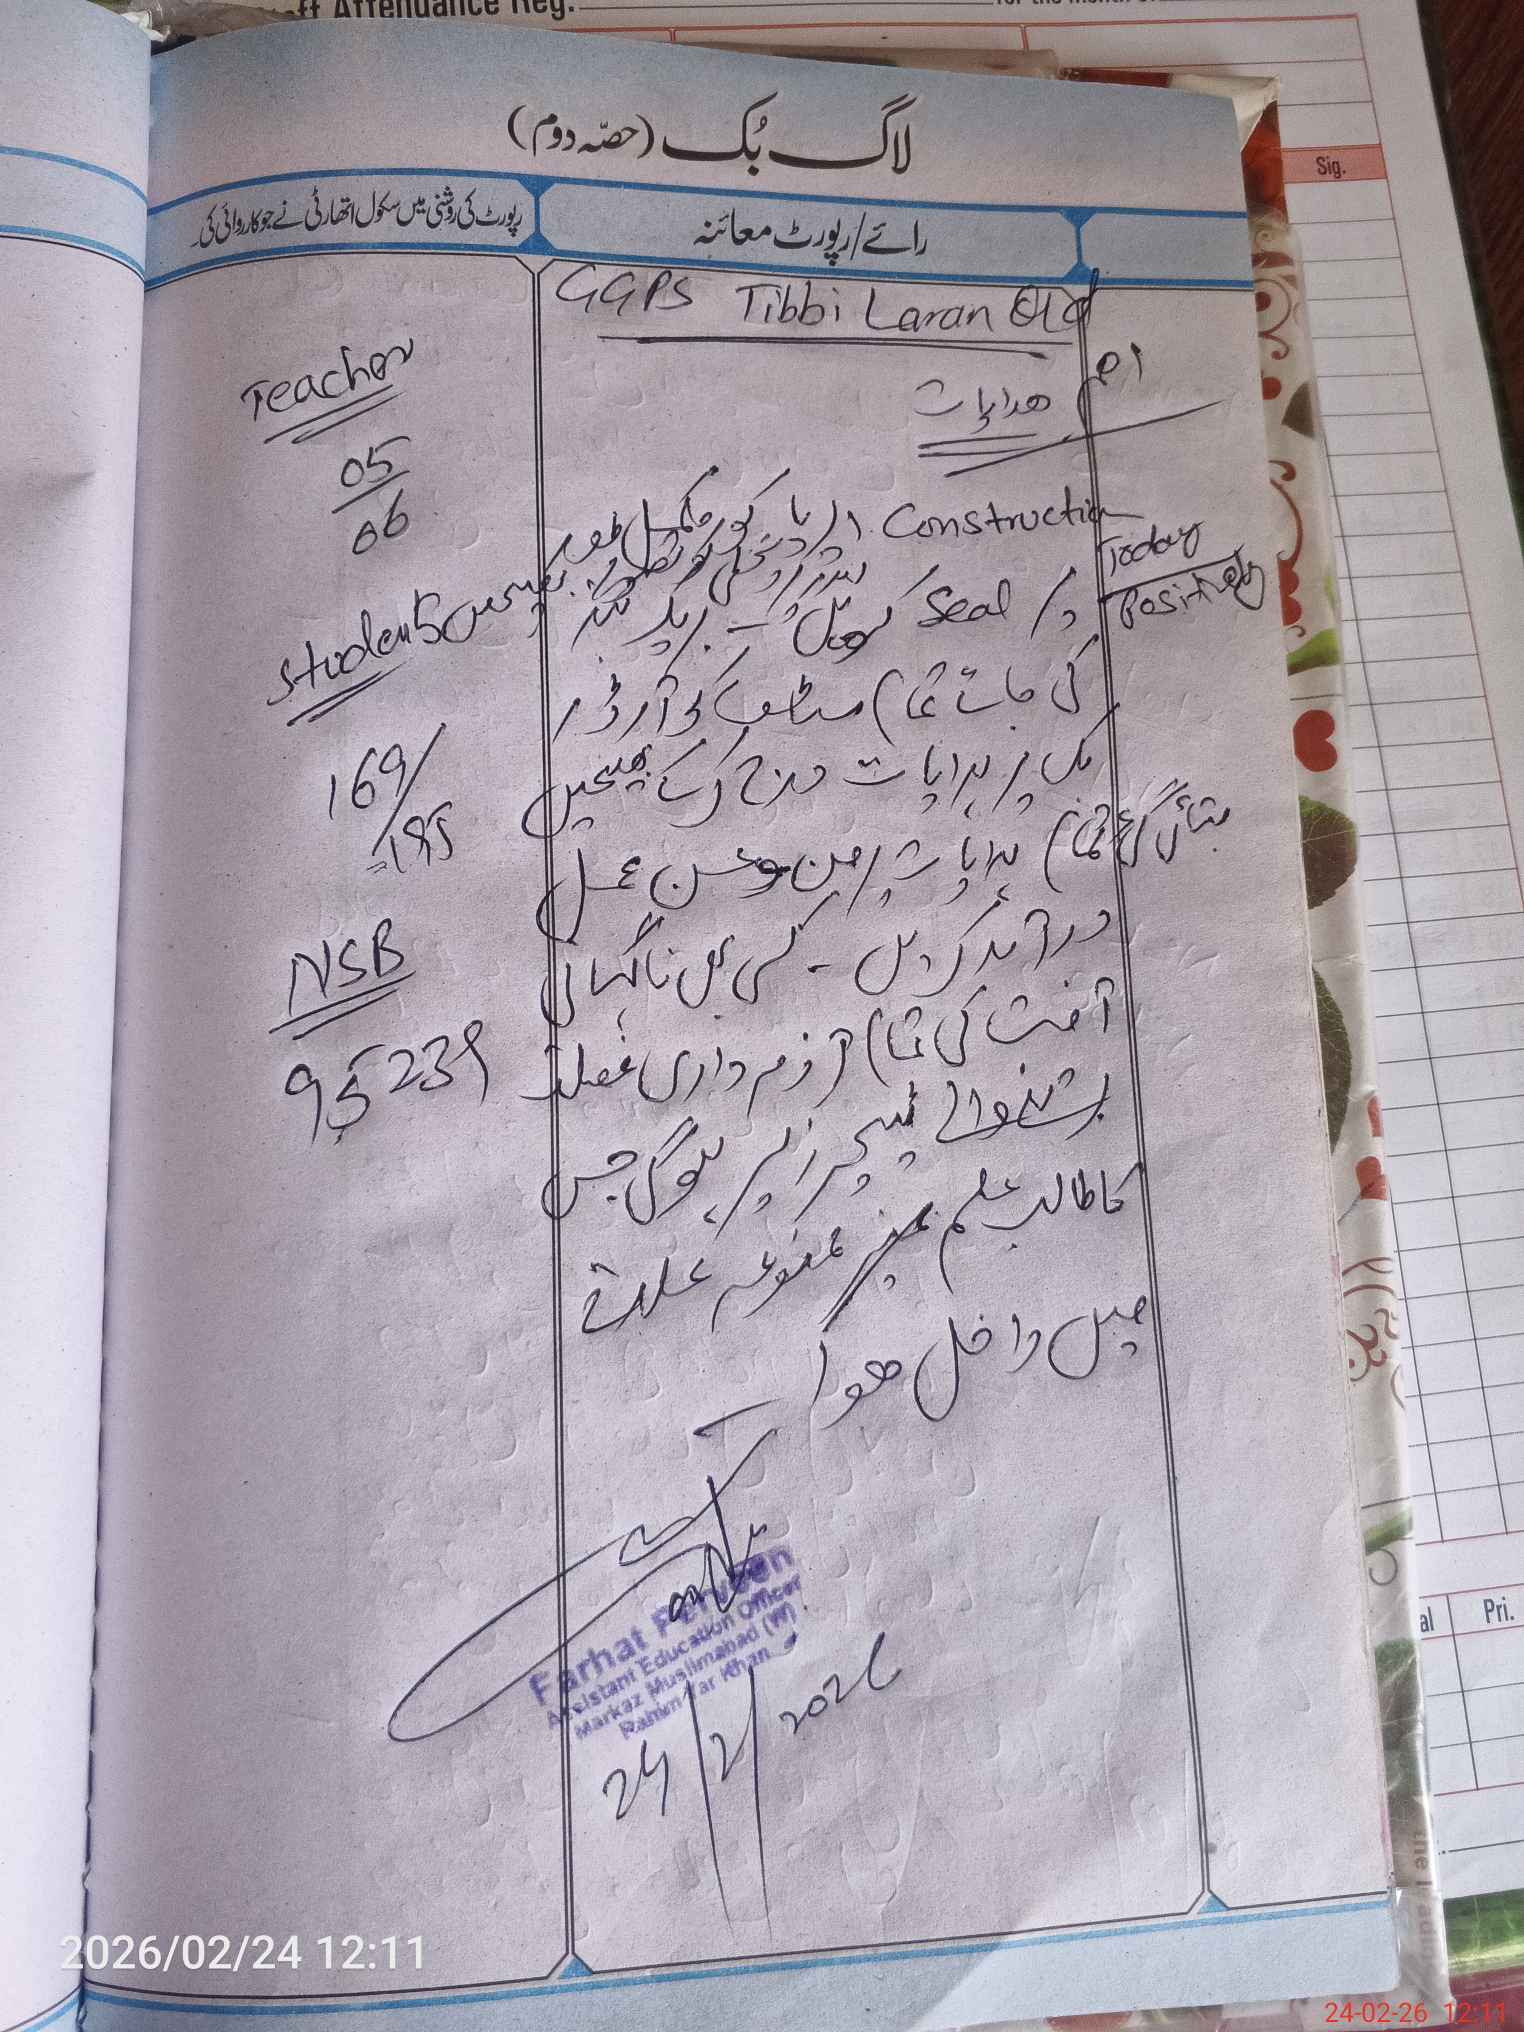 ff Attendance Reg.
لاگ بُک (حصّہ دوم)
رائے/رپورٹ معائنہ
رپورٹ کی روشنی میں سکول اتھارٹی نے جو کارروائی کی۔
GGPS Tibbi Laran Old
اہم ھدایات
Construction ایریا کو مکمل طور
پر Seal کریں۔
Today Positively
کی جائے تمام سٹاف کو آرڈر
بک پر ہدایات درج کرکے بھیجیں
بتائی گئی تمام ہدایات پر من وعن عمل
درآمد کریں۔ کسی بھی ناگہانی
آفت کی تمام تر ذمہ داری غفلت
برتنے والے ٹیچرز پر ہوگی جس
کا طالب علم ممنوعہ علاقے
میں داخل ھوا۔
Teacher
05
06
Students
169/
195
NSB
95239
Farhat Perveen
Assistant Education Officer
Markaz Muslimabad (W)
Rahim Yar Khan
24/2/2026
Sig.
Pri.
2026/02/24 12:11
24-02-26 12:11